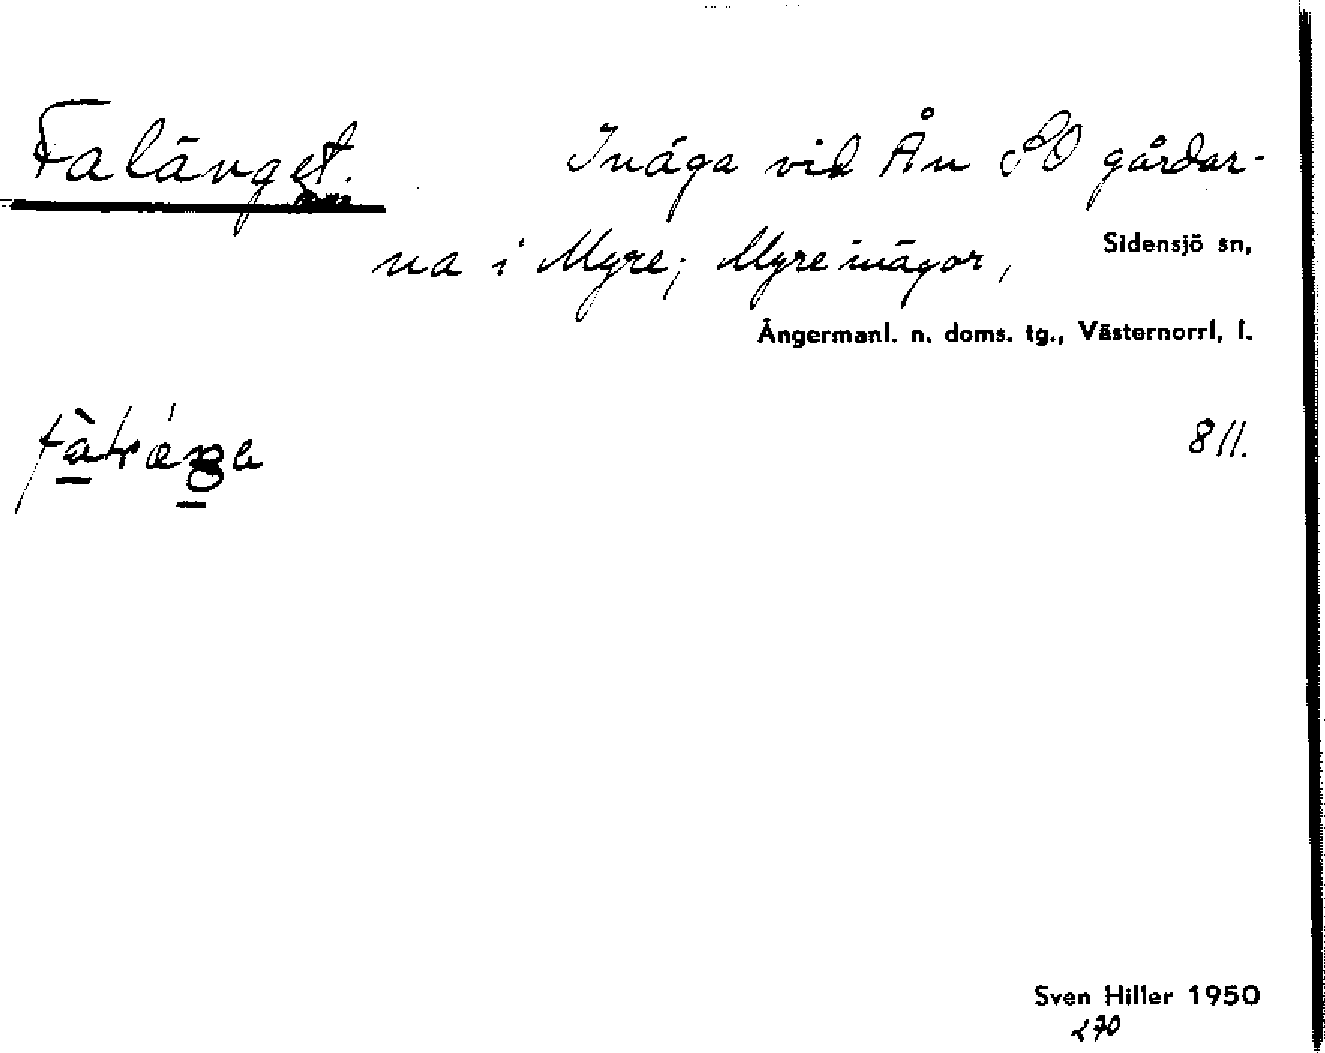 Falänget. Inäga vid Ån SO gårdar-
na i Myre; Myre inägor, Sidensjö sn,
Ångermanl. n. doms. tg., Västernorrl. l.
811.
Sven Hiller 1950
270